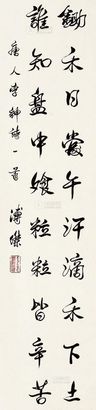 鋤禾日當午汗滴禾下土
誰知盤中飧粒粒皆辛苦
唐人李紳詩一首 溥傑